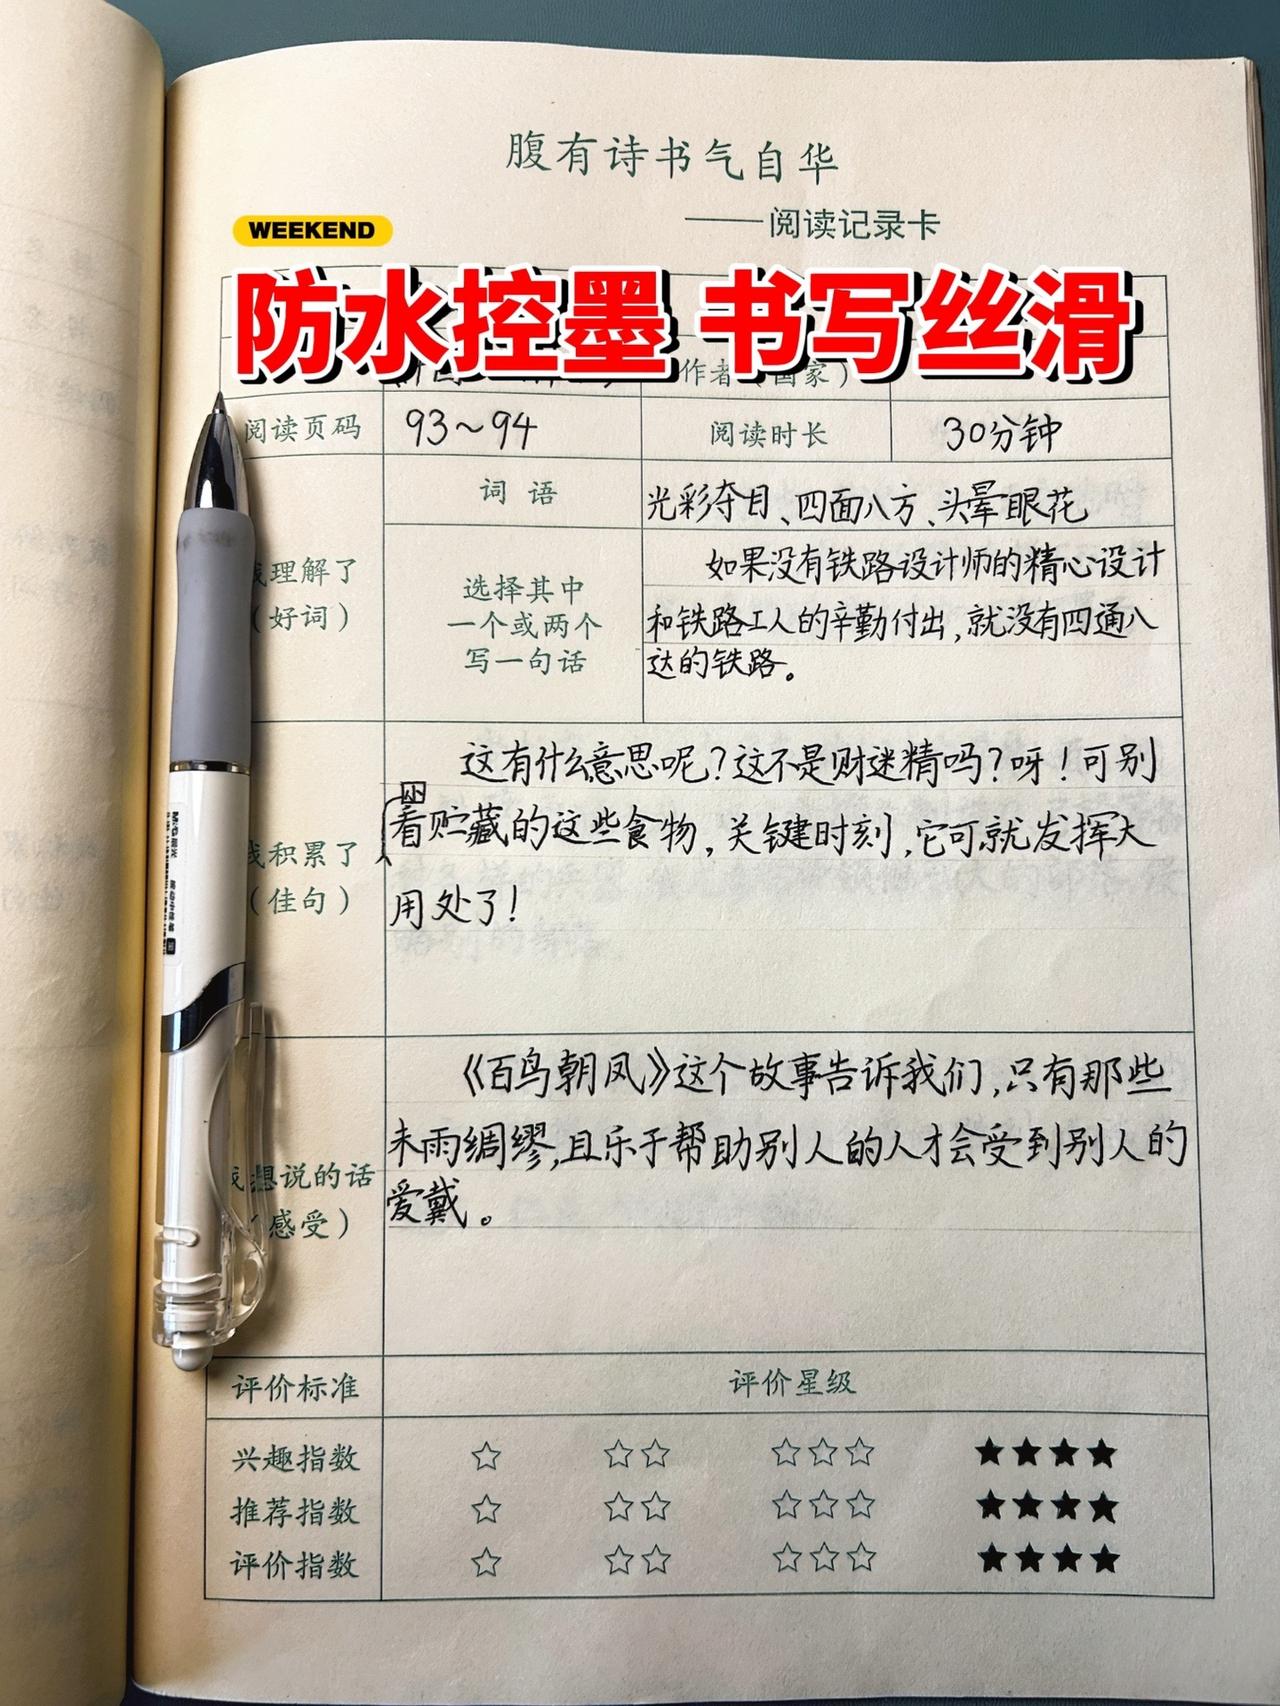 腹有诗书气自华
——阅读记录卡
WEEKEND
防水控墨 书写丝滑
作者（国家）
阅读页码 93～94 阅读时长 30分钟
词 语 光彩夺目、四面八方、头晕眼花
理解了
（好词）
选择其中
一个或两个
写一句话
如果没有铁路设计师的精心设计
和铁路工人的辛勤付出，就没有四通八
达的铁路。
积累了
（佳句）
这有什么意思呢？这不是财迷精吗？呀！可别
看贮藏的这些食物，关键时刻，它可就发挥大
用处了！
想说的话
（感受）
《百鸟朝凤》这个故事告诉我们，只有那些
未雨绸缪，且乐于帮助别人的人才会受到别人的
爱戴。
评价标准 评价星级
兴趣指数 ☆ ☆☆ ☆☆☆ ★★★★
推荐指数 ☆ ☆☆ ☆☆☆ ★★★★
评价指数 ☆ ☆☆ ☆☆☆ ★★★★